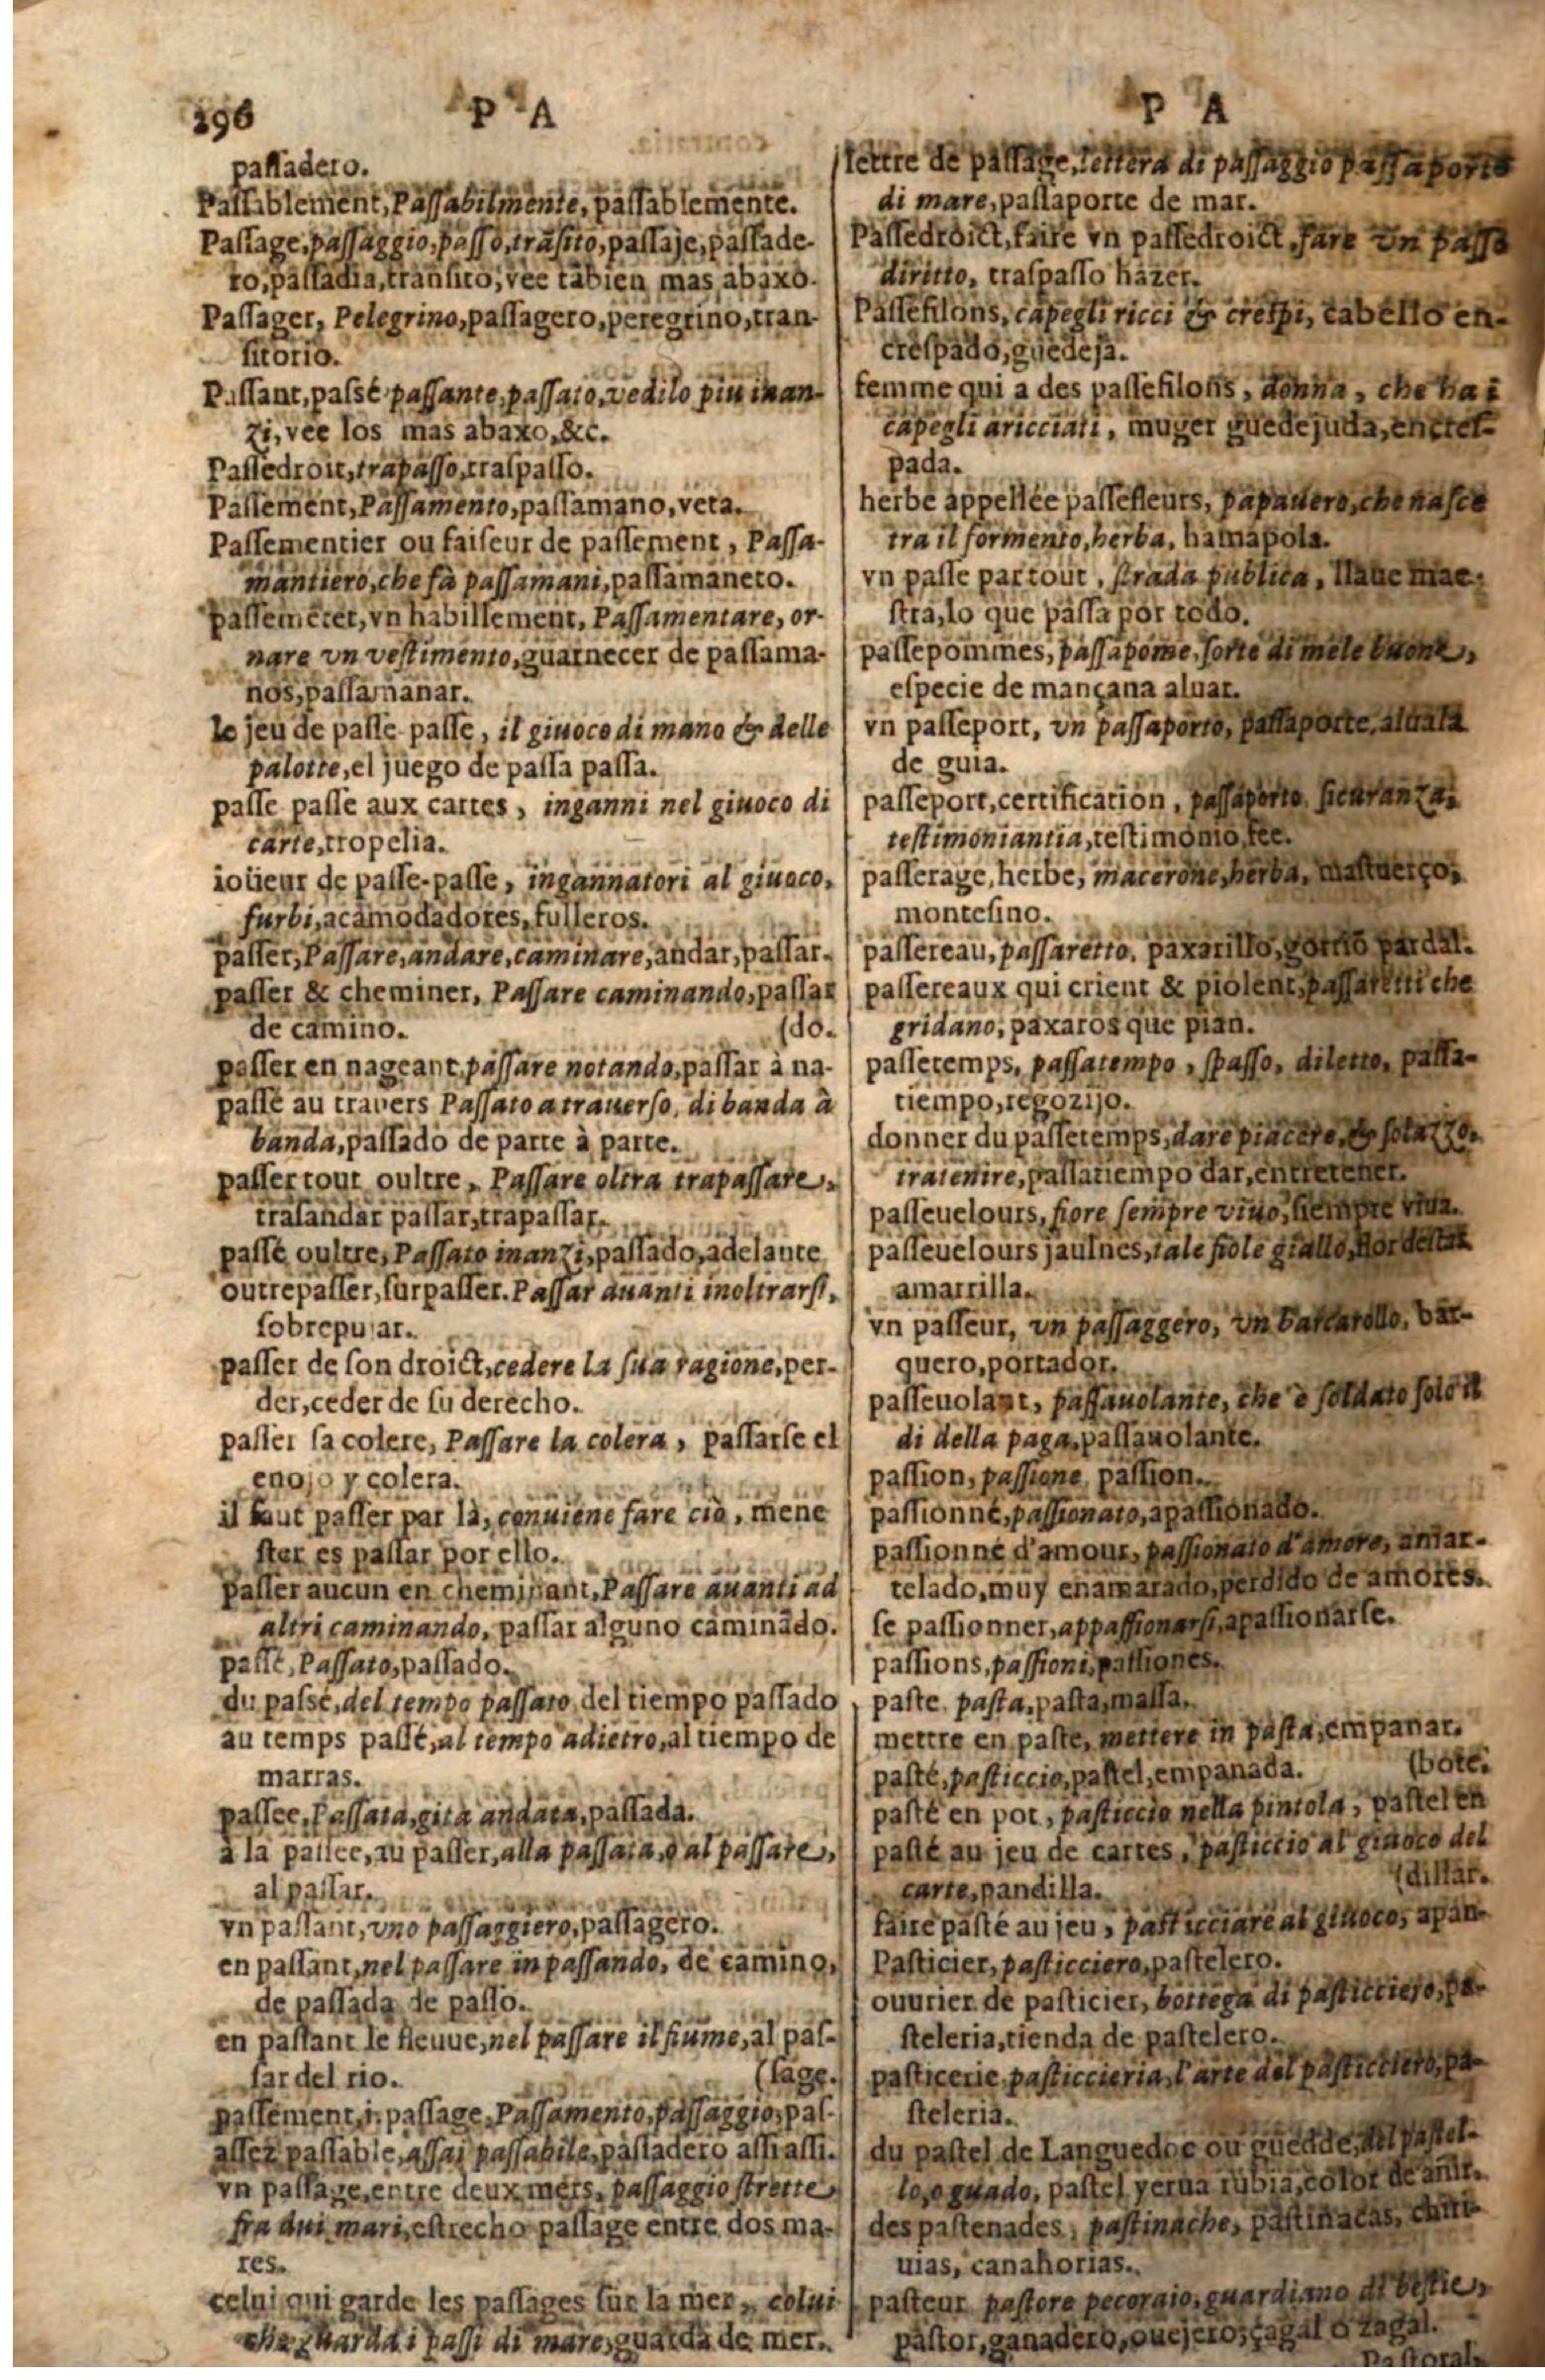 296 P A
passadero.
Passablement, Passabilmente, passablemente.
Passage, passaggio, passo, trãsito, passaje, passade-
ro, passadia, transito, vee tãbien mas abaxo.
Passager, Pelegrino, passagero, peregrino, tran-
sitorio.
Passant, passé passante, passato, vedilo piu inan-
zi, vee los mas abaxo, &c.
Passedroit, trapasso, traspasso.
Passement, Passamento, passamano, veta.
Passementier ou faiseur de passement, Passa-
mantiero, che fà passamani, passamanero.
passemẽter, vn habillement, Passamentare, or-
nare vn vestimento, guarnecer de passama-
nos, passamanar.
le jeu de passe passe, il giuoco di mano & delle
palotte, el juego de passa passa.
passe passe aux cartes, inganni nel giuoco di
carte, tropelia.
ioüeur de passe-passe, ingannatori al giuoco,
furbi, acamodadores, fulleros.
passer, Passare, andare, caminare, andar, passar.
passer & cheminer, Passare caminando, passar
de camino. (do.
passer en nageant, passare notando, passar à na-
passé au travers Passato a trauerso, di banda à
banda, passado de parte à parte.
passer tout oultre, Passare oltra trapassare,
trasandar passar, trapassar.
passé oultre, Passato inanzi, passado, adelante
outrepasser, surpasser. Passar auanti inoltrarsi,
sobrepujar.
passer de son droict, cedere la sua ragione, per-
der, ceder de su derecho.
passer sa colere, Passare la colera, passarse el
enojo y colera.
il faut passer par là, conuiene fare ciò, mene
ster es passar por ello.
passer aucun en cheminant, Passare auanti ad
altri caminando, passar alguno caminãdo.
passé, Passato, passado.
du passé, del tempo passato, del tiempo passado
au temps passé, al tempo adietro, al tiempo de
marras.
passee, Passata, gita andata, passada.
à la passee, au passer, alla passata, o al passare,
al passar.
vn passant, vno passaggiero, passagero.
en passant, nel passare in passando, de camino,
de passada de passo.
en passant le fleuue, nel passare il fiume, al pas-
sar del rio. (sage.
passement, i. passage, Passamento, passaggio, pas-
assez passable, assai passabile, passadero assi assi.
vn passage, entre deux mers, passaggio strette
fra dui mari, estrecho passage entre dos ma-
res.
celui qui garde les passages sur la mer, colui
che guarda i passi di mare, guarda de mer.
P A
lettre de passage, lettera di passaggio passaporto
di mare, passaporte de mar.
Passedroict, faire vn passedroict, fare vn passo
diritto, traspasso hazer.
Passefilons, capegli ricci & crespi, cabello en-
crespado, guedeja.
femme qui a des passefilons, donna, che ha i
capegli aricciati, muger guedejuda, encres-
pada.
herbe appellée passefleurs, papauero, che nasce
tra il formento, herba, hamapola.
vn passe par tout, strada publica, llaue mae-
stra, lo que passa por todo.
passepommes, passapome, sorte di mele buone,
especie de mançana aluar.
vn passeport, vn passaporto, passaporte, aluala
de guia.
passeport, certification, passaporto sicuranza,
testimoniantia, testimonio, fee.
passerage, herbe, macerone, herba, mastuerço,
montesino.
passereau, passaretto, paxarillo, gorriõ pardal.
passereaux qui crient & piolent, passaretti che
gridano, paxaros que pian.
passetemps, passatempo, spasso, diletto, passa-
tiempo, regozijo.
donner du passetemps, dare piacere, & solazzo,
tratenire, passatiempo dar, entretener.
passeuelours, fiore sempre viuo, siempre viua.
passeuelours jaulnes, tale fiole giallo, flor
amarrilla.
vn passeur, vn passaggero, vn barcarollo, bar-
quero, portador.
passeuolant, passauolante, che è soldato solo il
di della paga, passauolante.
passion, passione passion.
passionné, passionato, apassionado.
passionné d'amour, passionato d'amore, amar-
telado, muy enamarado, perdido de amores.
se passionner, appassionarsi, apassionarse.
passions, passioni, passiones.
paste pasta, pasta, massa.
mettre en paste, mettere in pasta, empanar.
pasté, pasticcio, pastel, empanada. (bote.
pasté en pot, pasticcio nella pintola, pastel en
pasté au jeu de cartes, pasticcio al giuoco del
carte, pandilla. (dillar.
faire pasté au jeu, pasticciare al giuoco, apan-
Pasticier, pasticciero, pastelero.
ouurier de pasticier, bottega di pasticciero, pa-
steleria, tienda de pastelero.
pasticerie pasticcieria, l'arte del pasticciero, pa-
steleria.
du pastel de Languedoc ou guedde, del pastel-
lo, o guado, pastel yerua rubia, color de añir.
des pastenades, pastinache, pastinacas, chiri-
uias, canahorias.
pasteur pastore pecoraio, guardiano di bestie,
pastor, ganadero, ouejero, çagal o zagal.
Pastoral,